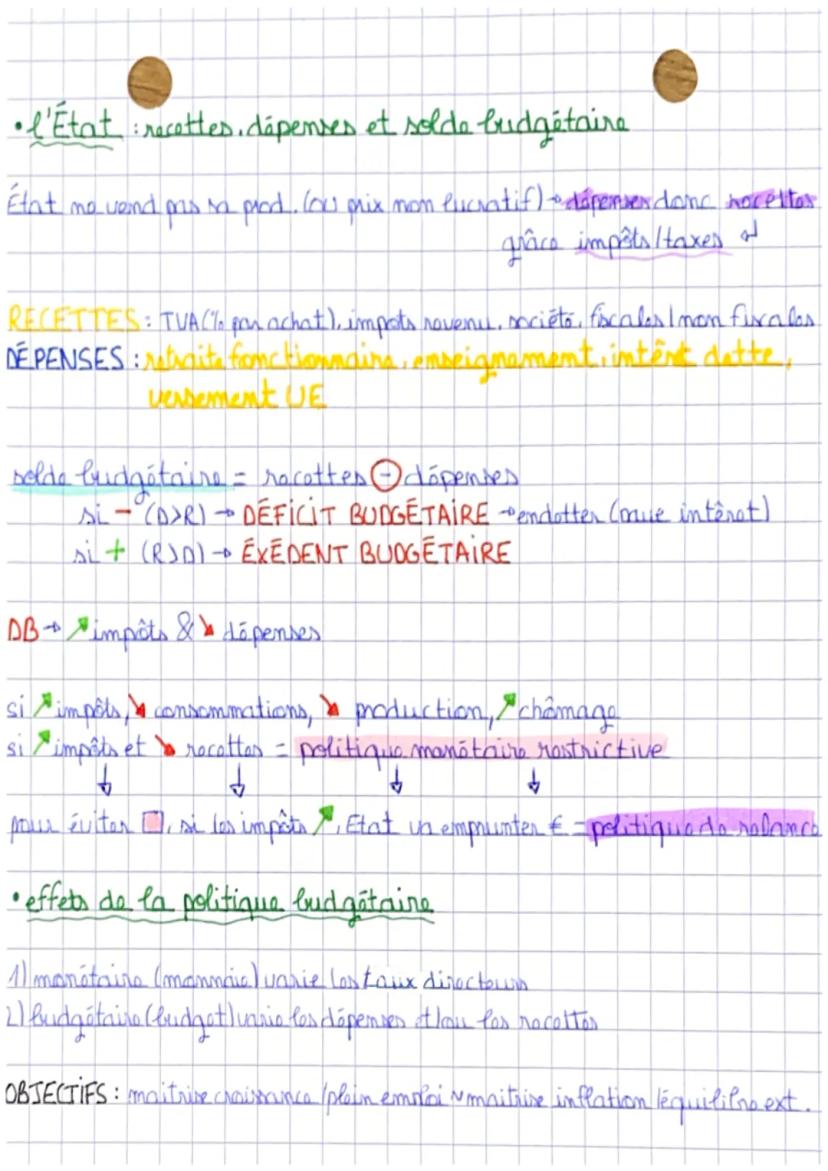 • l'État : recettes, dépenses et solde budgétaire
État ne vend pas sa prod. (ou prix non lucratif) → dépenses donc recettes
grâce impôts/taxes ↲
RECETTES : TVA (% par achat), impots revenu, société, fiscales / non fiscales
DÉPENSES : retraite fonctionnaire, enseignement, intêrt dette,
versement UE
solde budgétaire = recettes ⊖ dépenses
si - (D>R) → DÉFICIT BUDGÉTAIRE → endetter (mue intêret)
si + (R>D) → ÉXÉDENT BUDGÉTAIRE
DB → ↗ impôts & ↘ dépenses
si ↗ impôts, ↘ consommations, ↘ production, ↗ chômage
si ↗ impôts et ↘ recettes = politique monétaire restrictive
↓ ↓ ↓ ↓
pour éviter □, si les impôts ↗, Etat va emprunter € = politique de relance
• effets de la politique budgétaire
1) monétaire (monnaie) varie les taux directeurs
2) budgétaire (budget) varie les dépenses et/ou les recettes
OBJECTIFS : maitrise croissance / plein emploi ~ maitrise inflation / équilibre ext.